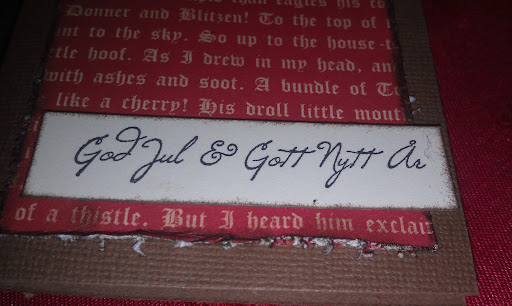 than eagles his co
Donner and Blitzen! To the top of
nt to the sky. So up to the house-t
tle hoof. As I drew in my head, an
with ashes and soot. A bundle of To
like a cherry! His droll little mout
God Jul & Gott Nytt År
of a thistle. But I heard him exclai